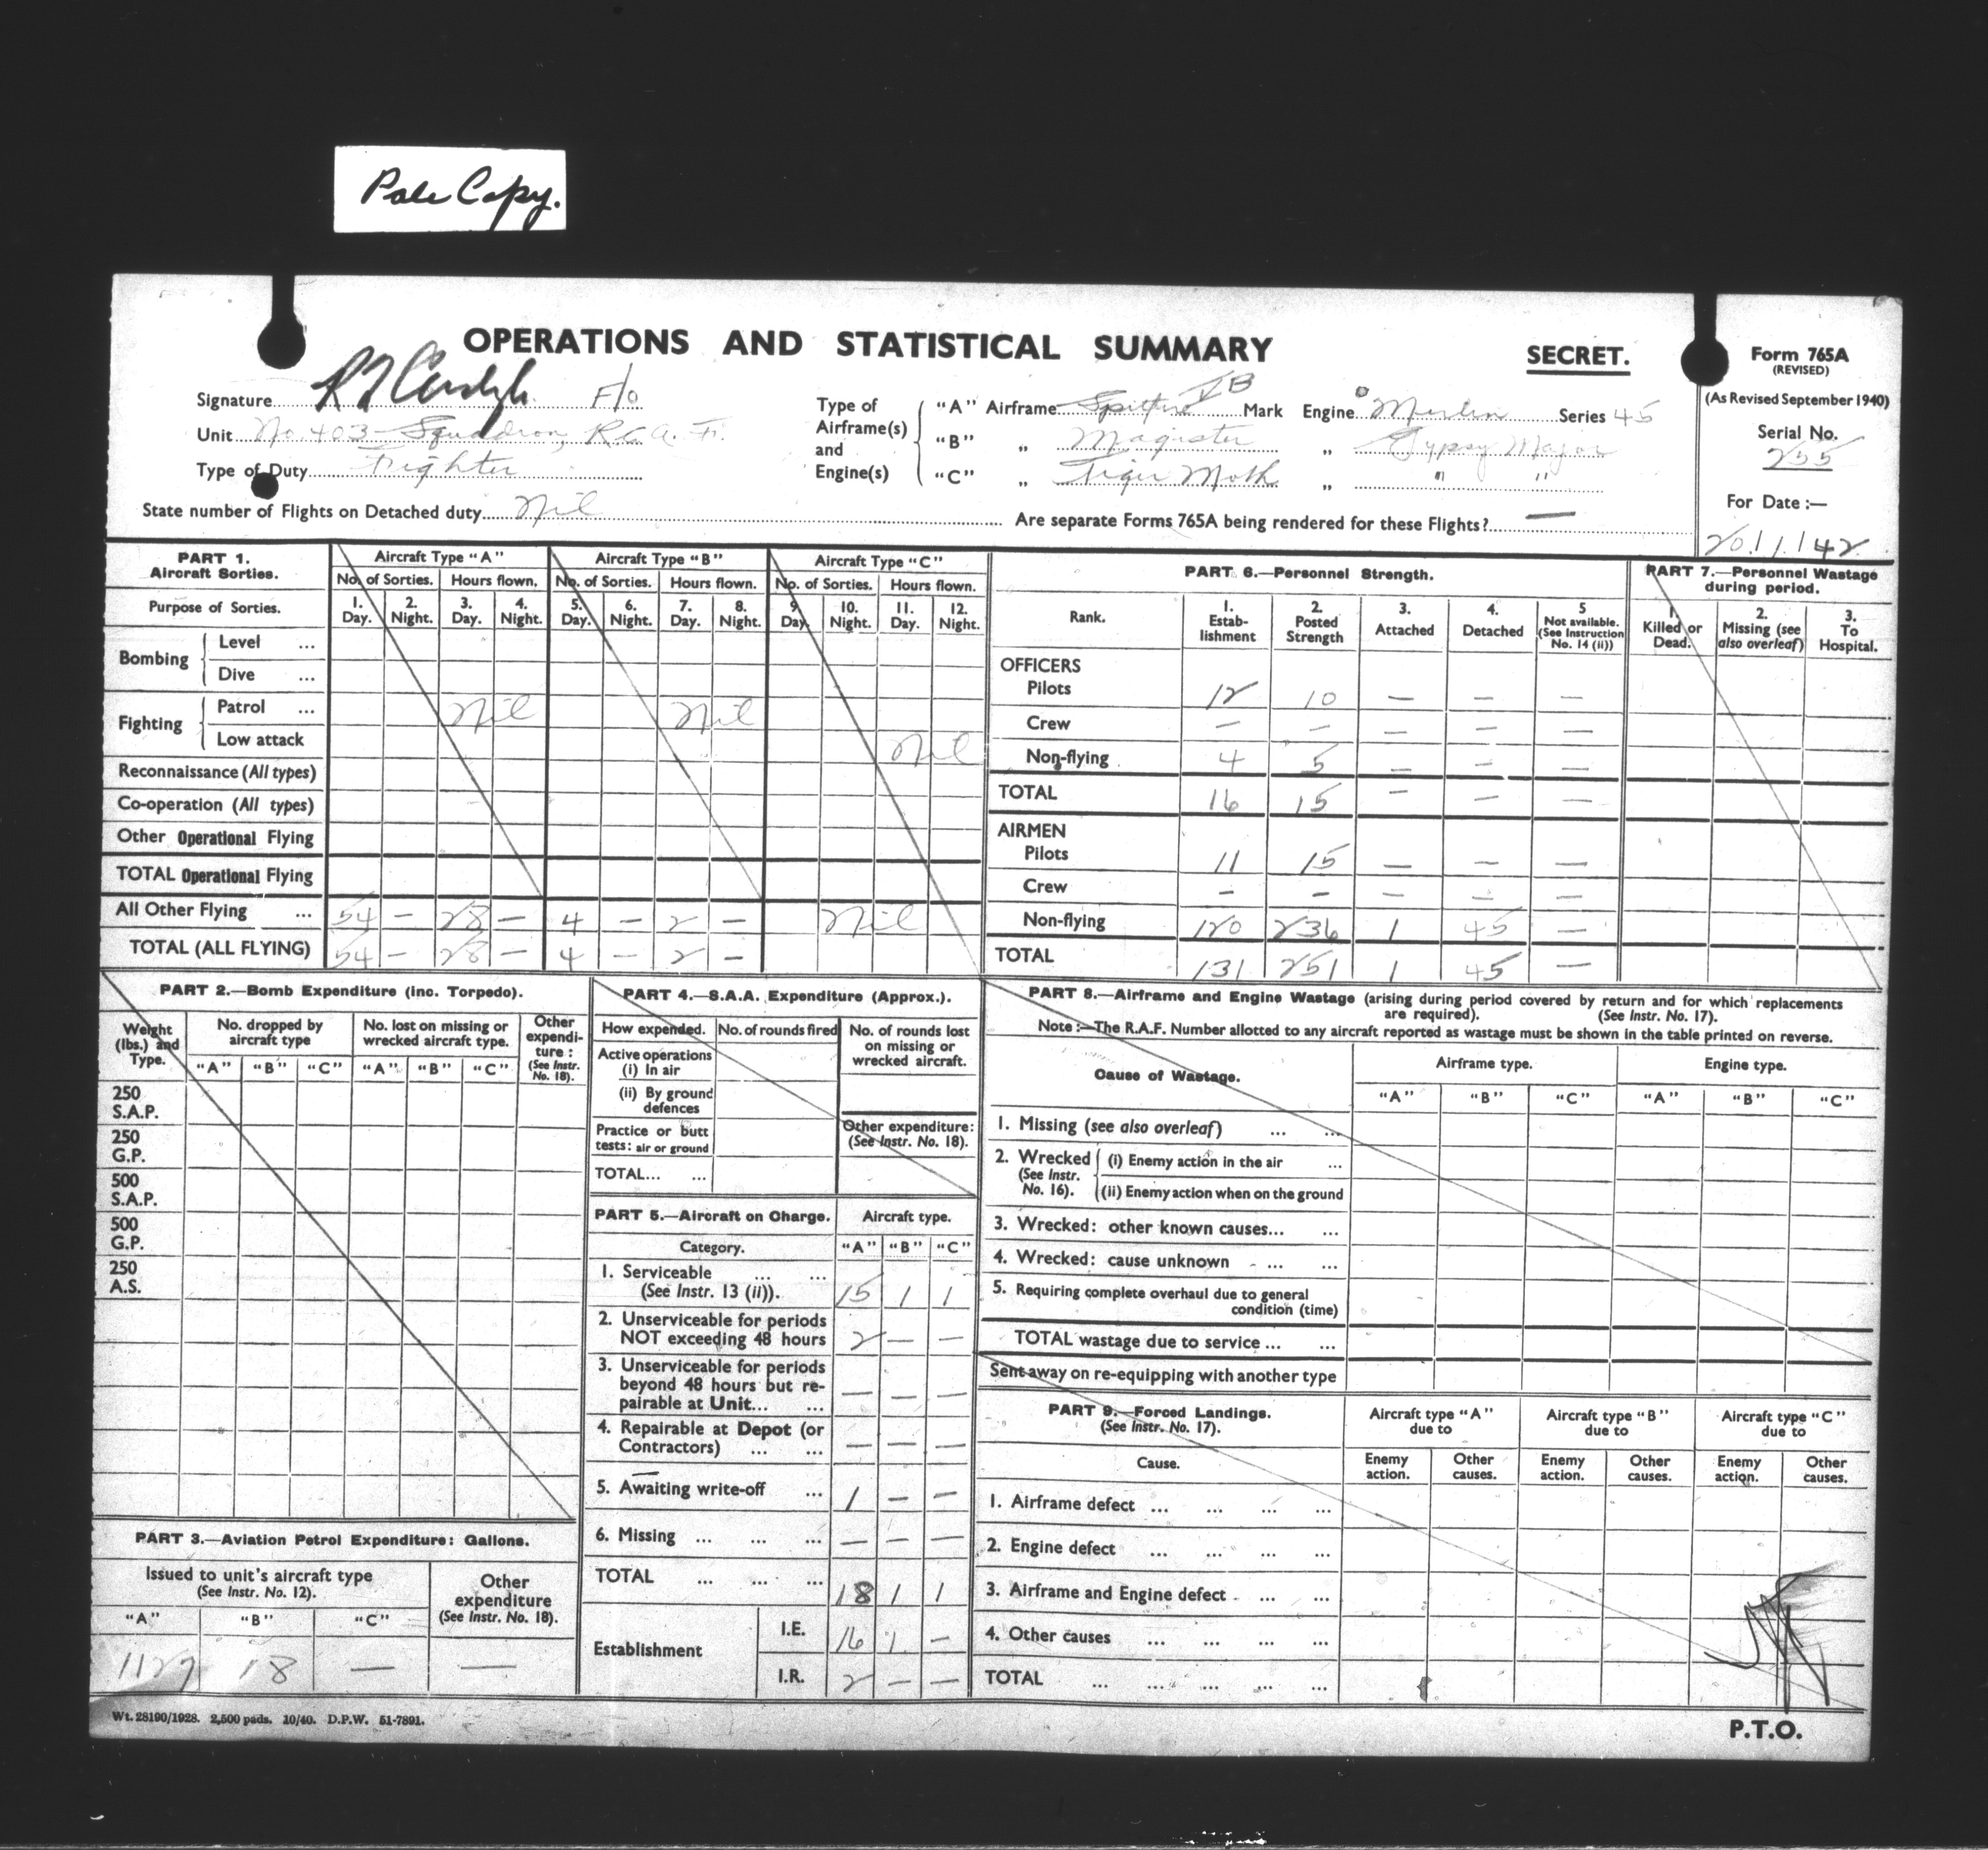 Pale Copy.
OPERATIONS AND STATISTICAL SUMMARY
SECRET.
Form 765A
(REVISED)
(As Revised September 1940)
Serial No.
255
For Date :—
20/1/42
Signature F/o
Unit No. 403 Squadron, R.C.A.F.
Type of Duty Fighter
State number of Flights on Detached duty Nil
Type of Airframe(s) and Engine(s)
"A" Airframe Spitfire VB Mark Engine Merlin Series 45
"B" „ Magister „ Gypsy Major
"C" „ Tiger Moth „ " "
Are separate Forms 765A being rendered for these Flights? —
PART 1.
Aircraft Sorties.
Aircraft Type "A" Aircraft Type "B" Aircraft Type "C"
No. of Sorties. Hours flown. No. of Sorties. Hours flown. No. of Sorties. Hours flown.
Purpose of Sorties.
1. Day. 2. Night. 3. Day. 4. Night. 5. Day. 6. Night. 7. Day. 8. Night. 9. Day. 10. Night. 11. Day. 12. Night.
Bombing
Level ...
Dive ...
Fighting
Patrol ... Nil Nil
Low attack Nil
Reconnaissance (All types)
Co-operation (All types)
Other Operational Flying
TOTAL Operational Flying
All Other Flying ... 54 — 28 — 4 — 2 — Nil
TOTAL (ALL FLYING) 54 — 28 — 4 — 2 —
PART 6.—Personnel Strength.
Rank.
1. Estab-lishment
2. Posted Strength
3. Attached
4. Detached
5 Not available. (See Instruction No. 14 (ii))
OFFICERS
Pilots 12 10 — — —
Crew — — — — —
Non-flying 4 5 — — —
TOTAL 16 15 — — —
AIRMEN
Pilots 11 15 — — —
Crew — — — — —
Non-flying 120 236 1 45 —
TOTAL 131 251 1 45 —
PART 7.—Personnel Wastage
during period.
1. Killed or Dead.
2. Missing (see also overleaf)
3. To Hospital.
PART 2.—Bomb Expenditure (inc. Torpedo).
Weight (lbs.) and Type.
No. dropped by aircraft type
No. lost on missing or wrecked aircraft type.
Other expendi-ture : (See Instr. No. 18).
"A" "B" "C" "A" "B" "C"
250 S.A.P.
250 G.P.
500 S.A.P.
500 G.P.
250 A.S.
PART 3.—Aviation Petrol Expenditure: Gallons.
Issued to unit's aircraft type
(See Instr. No. 12).
Other expenditure (See Instr. No. 18).
"A" "B" "C"
1127 18 — —
PART 4.—S.A.A. Expenditure (Approx.).
How expended. No. of rounds fired No. of rounds lost on missing or wrecked aircraft.
Active operations
(i) In air
(ii) By ground defences
Practice or butt tests: air or ground
Other expenditure: (See Instr. No. 18).
TOTAL... ...
PART 5.—Aircraft on Charge. Aircraft type.
Category. "A" "B" "C"
1. Serviceable ... ...
(See Instr. 13 (ii)). 15 1 1
2. Unserviceable for periods
NOT exceeding 48 hours 2 — —
3. Unserviceable for periods
beyond 48 hours but re-
pairable at Unit... ... — — —
4. Repairable at Depot (or
Contractors) ... ... — — —
5. Awaiting write-off ... 1 — —
6. Missing ... ... ... — — —
TOTAL ... ... ... 18 1 1
Establishment
I.E. 16 1 —
I.R. 2 — —
PART 8.—Airframe and Engine Wastage (arising during period covered by return and for which replacements
are required). (See Instr. No. 17).
Note :—The R.A.F. Number allotted to any aircraft reported as wastage must be shown in the table printed on reverse.
Cause of Wastage. Airframe type. Engine type.
"A" "B" "C" "A" "B" "C"
1. Missing (see also overleaf) ... ...
2. Wrecked (See Instr. No. 16).
(i) Enemy action in the air ...
(ii) Enemy action when on the ground
3. Wrecked: other known causes... ...
4. Wrecked: cause unknown ... ...
5. Requiring complete overhaul due to general
condition (time)
TOTAL wastage due to service ... ...
Sent away on re-equipping with another type
PART 9.—Forced Landings.
(See Instr. No. 17).
Aircraft type "A" due to Aircraft type "B" due to Aircraft type "C" due to
Cause.
Enemy action. Other causes. Enemy action. Other causes. Enemy action. Other causes.
1. Airframe defect ... ... ... ...
2. Engine defect ... ... ... ...
3. Airframe and Engine defect ... ...
4. Other causes ... ... ... ...
TOTAL ... ... ... ... ...
Wt. 28190/1928. 2,500 pads. 10/40. D.P.W. 51-7891.
P.T.O.